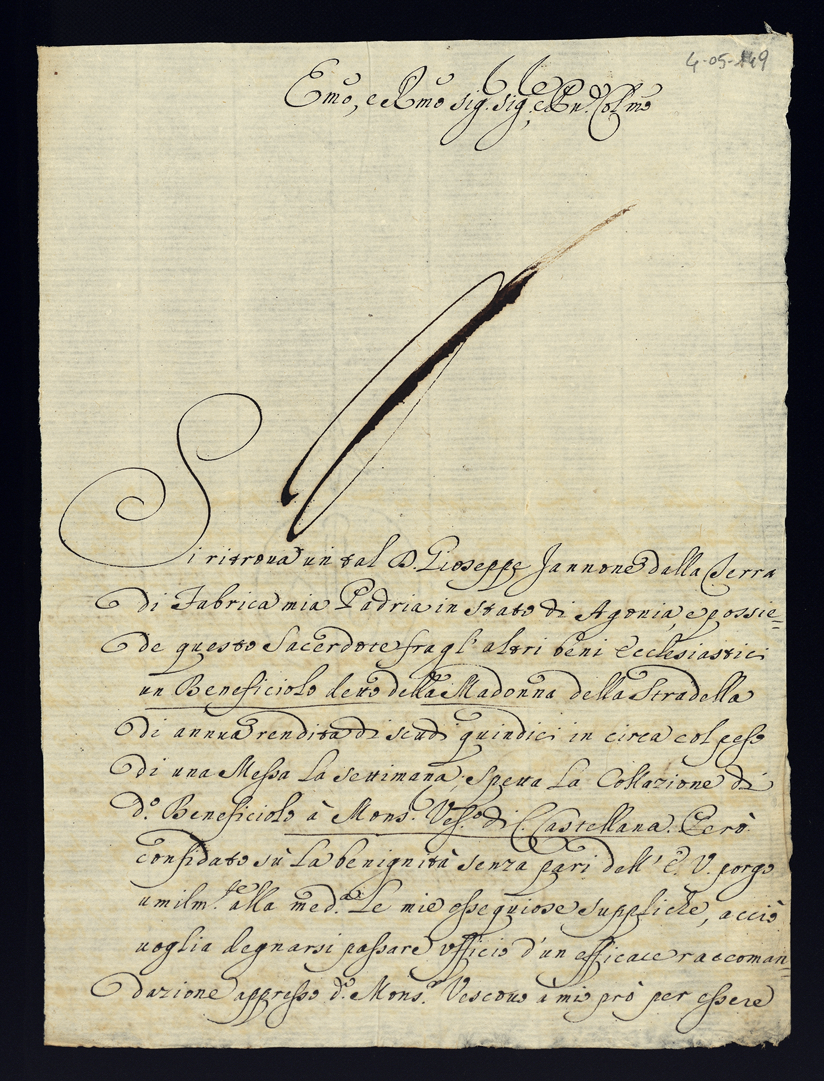 4-05-149
Emõ, e Rmõ sig. sig., e Pñ. Colmõ
Si ritrova un tal D. Gioseppe Jannone dalla Terra
di Fabrica mia Padria in stato di Agonia, e possie=
de questo Sacerdote fra gl'altri beni Ecclesiastici
un Beneficiolo detto della Madonna della Stradella
di annua rendita di scudi quindici in circa col peso
di una Messa la settimana; spetta la Collazione di
d.º Beneficiolo à Mons.r Vesc.º di C. Castellana. Però
confidato sù la benignità senza pari dell'E. V. porgo
umilm.te alla med.a le mie ossequiose suppliche, acciò
voglia degnarsi passare ufficio d'un efficace raccoman=
dazione appresso d.º Mons.r Vescovo à mio prò per essere